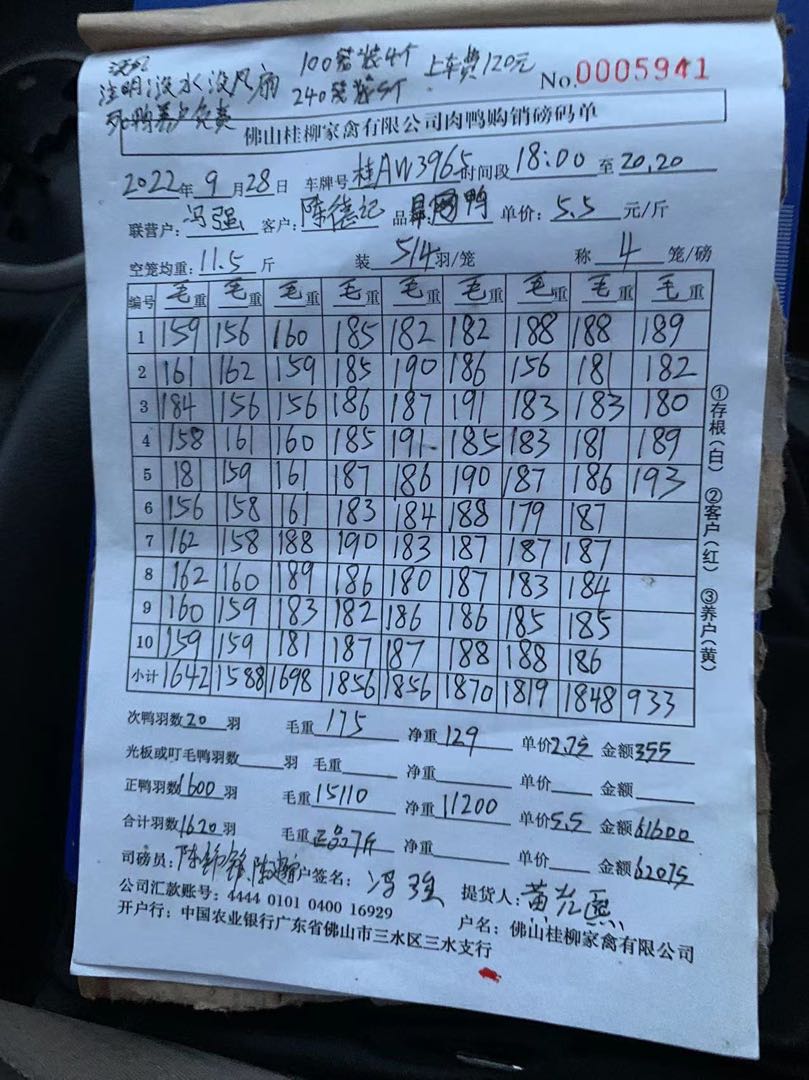 注明:没水没风扇 100笼装4个 上车费120元
死鸭养户负责 240笼装5个 No.0005941
佛山桂柳家禽有限公司肉鸭购销磅码单
2022年9月28日 车牌号桂AW3965时间段18:00至20,20
联营户:冯强 客户:陈德记 品 鸭 单价:5.5元/斤
空笼均重:11.5斤 装5/4羽/笼 称4笼/磅
编号 毛重 毛重 毛重 毛重 毛重 毛重 毛重 毛重 毛重
1 159 156 160 185 182 182 188 188 189
2 161 162 159 185 190 186 156 181 182
3 184 156 156 186 187 191 183 183 180
4 158 161 160 185 191 185 183 181 189
5 181 159 161 187 186 190 187 186 193
6 156 158 161 183 184 188 179 187
7 162 158 188 190 183 187 187 187
8 162 160 189 186 180 187 183 184
9 160 159 183 182 186 186 185 185
10 159 159 181 187 187 188 188 186
小计 1642 1588 1698 1856 1856 1870 1819 1848 933
次鸭羽数20羽 毛重175 净重129 单价2.75 金额355
光板或叮毛鸭羽数 羽 毛重 净重 单价 金额
正鸭羽数1600羽 毛重15110 净重11200 单价5.5 金额61600
合计羽数1620羽 毛重正品7斤 净重 单价 金额62075
司磅员: 户签名:冯强 提货人:黄
公司汇款账号:4444 0101 0400 16929 户名:佛山桂柳家禽有限公司
开户行:中国农业银行广东省佛山市三水区三水支行
①存根(白) ②客户(红) ③养户(黄)